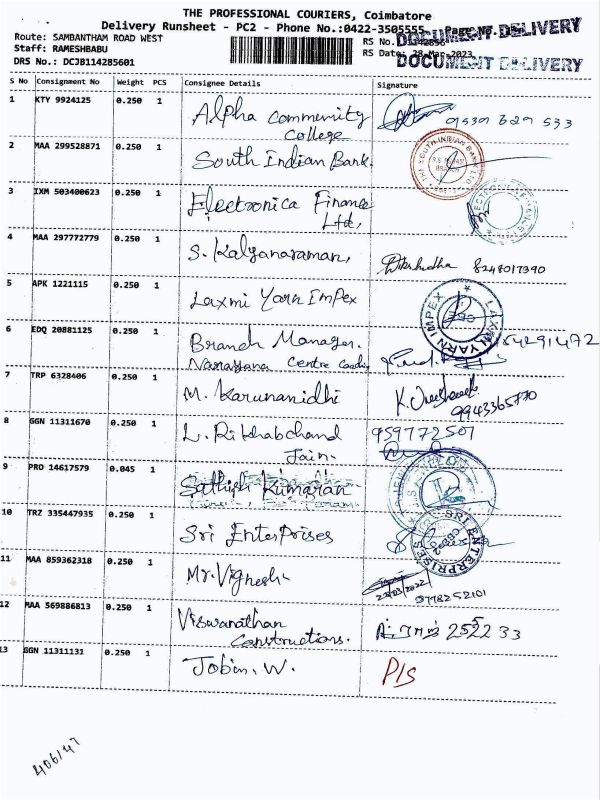 THE PROFESSIONAL COURIERS, Coimbatore
Delivery Runsheet - PC2 - Phone No.:0422-3505555
DOCUMENT DELIVERY
Route: SAMBANTHAM ROAD WEST
RS No.
Staff: RAMESHBABU
RS Date: 28-Mar-2023
DRS No.: DCJB114285601
DOCUMENT DELIVERY
S No Consignment No Weight PCS Consignee Details Signature
1 KTY 9924125 0.250 1 Alpha Community
College
2 MAA 299528871 0.250 1 South Indian Bank.
3 IXM 503400623 0.250 1 Electronica Finance
Ltd,
4 MAA 297772779 0.250 1 S. Kalyanaraman, 8248017390
5 APK 1221115 0.250 1 Laxmi Yarn Impex
LAXMI YARN IMPEX
6 EDQ 20881125 0.250 1 Branch Manager.
Narayana Centre
7 TRP 6328406 0.250 1 M. Karunanidhi
9943365770
8 GGN 11311670 0.250 1 L. Rikhabchand 959772507
Jain.
9 PRO 14617579 0.045 1 Sathish Kumaran
10 TRZ 335447935 0.250 1 Sri Enterprises
SRI ENTERPRISES
11 MAA 859362318 0.250 1 Mr. Vignesh
9778252101
12 MAA 569886813 0.250 1 Viswanathan
Constructions. 2552233
13 GGN 11311131 0.250 1 Jobin. W. P/S
406/47